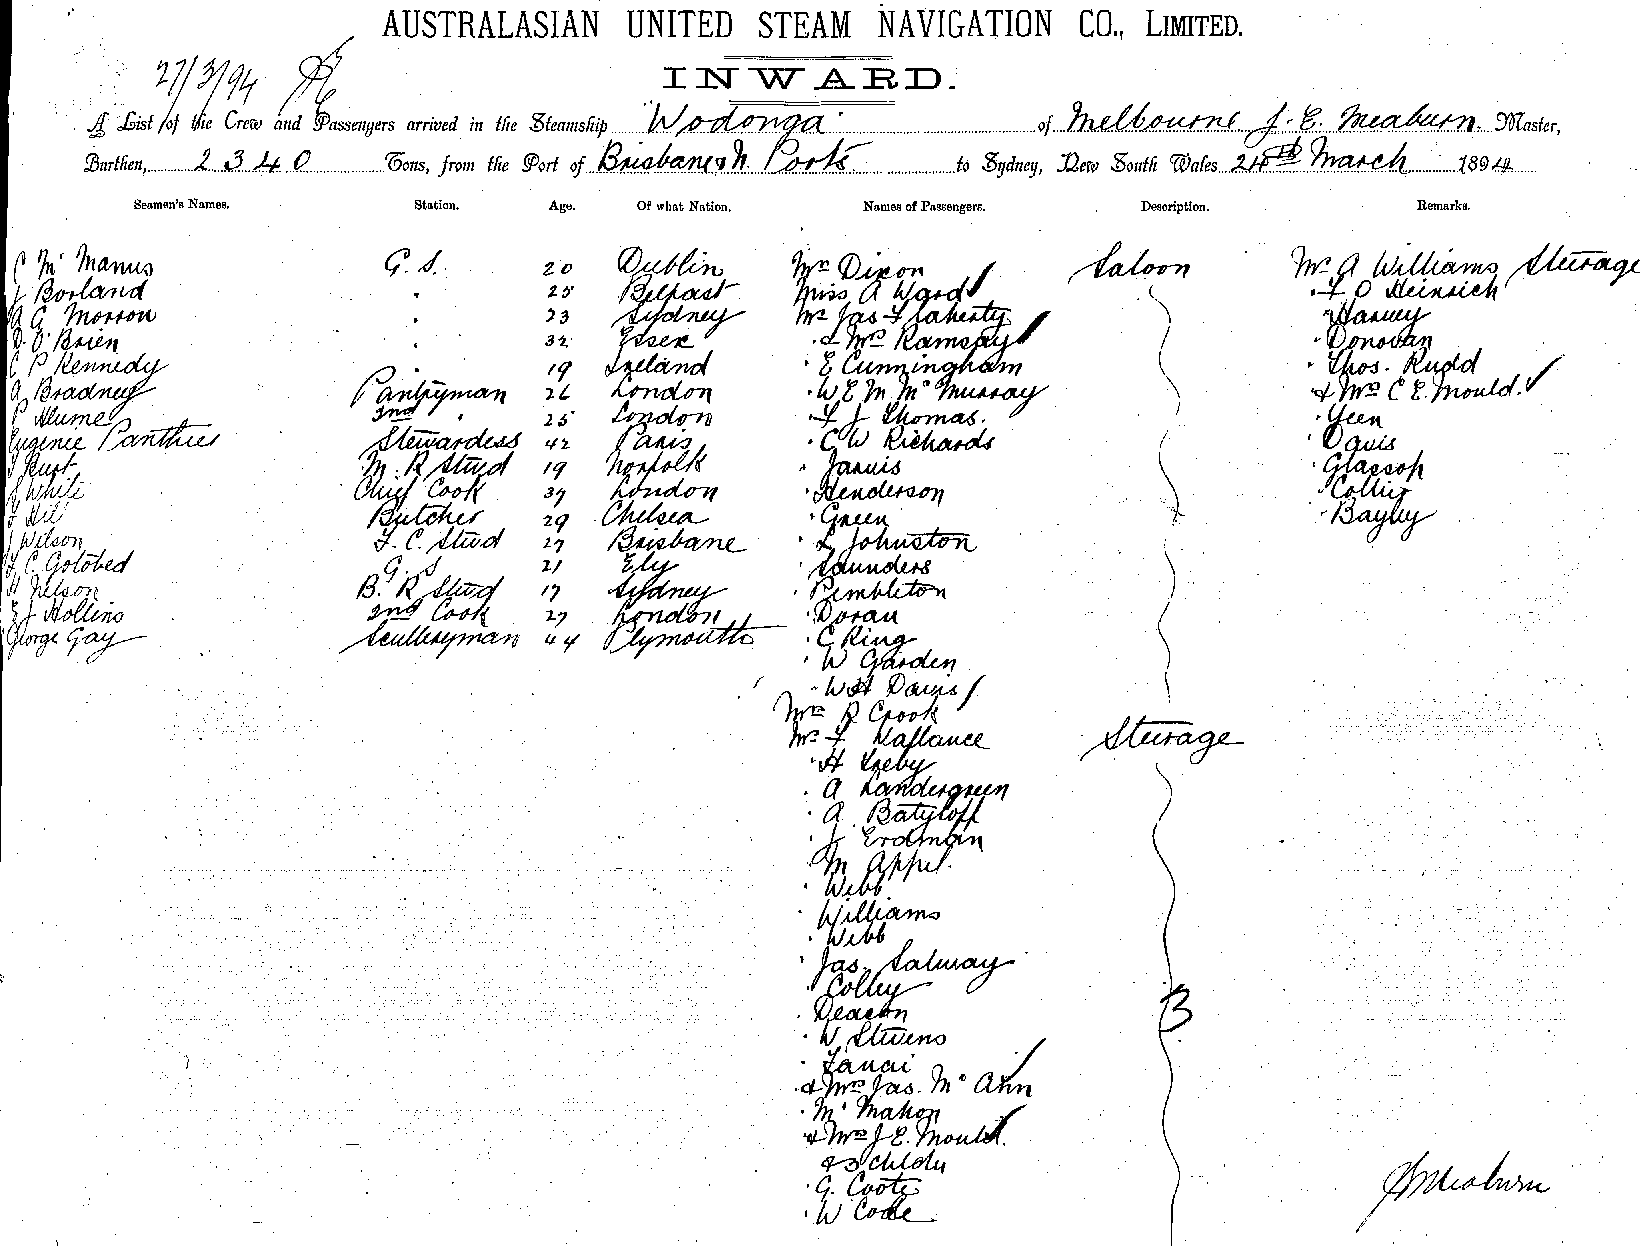 AUSTRALASIAN UNITED STEAM NAVIGATION CO., LIMITED.
27/3/94
INWARD.
A List of the Crew and Passengers arrived in the Steamship "Wodonga" of Melbourne J. E. Meaburn. Master,
Burthen, 2340 Tons, from the Port of Brisbane & N. Ports to Sydney, New South Wales 24th March 1894
Seamen's Names. Station. Age. Of what Nation. Names of Passengers. Description. Remarks.
C McManus G. S. 20 Dublin Mrs Dixon Saloon Mr A Williams Sturage
J Borland " 25 Belfast Miss A Ward " F O Heinrich
A G Morron " 23 Sydney Mr Jas Flaherty " Harvey
D O'Brien " 32 Essex " & Mrs Ramsay " Donovan
C P Kennedy " 19 Ireland " E Cunningham " Thos. Rudd
A Bradney Pantryman 26 London " W E M McMurray & Mrs C E. Mould.
P Hume 2nd " 25 London " F J Thomas. " Geen
Eugenie Panthier Stewardess 42 Paris " C W Richards " Davis
Hurt M. R Stwd 19 Norfolk " Jarvis " Glassop
J White Chief Cook 37 London " Henderson " Collie
J Hill Butcher 29 Chelsea " Green " Bayley
J Wilson F. C. Stwd 27 Brisbane " L Johnston
C. Gotobed G. S 21 Ely " Saunders
H Nelson B. R Stwd 17 Sydney " Pembleton
E J Hollins 2nd Cook 27 London " Doran
George Gay Sculleryman 44 Plymouth " C King
" W Garden
" W H Davis
Mrs R Crook
Mr F Naflance Sturage
" H Treby
" A Landergreen
" A Batyloff
" J Erdman
" M Appel.
" Webb
" Williams
" Webb
" Jas. Salway
" Colley
" Deacon B
" W. Stevens
" Fanai
" & Mrs Jas. McAnn
" McMahon
& Mrs J E. Mould.
& 3 childn
" G. Coote
" W Coode
J E Meaburn